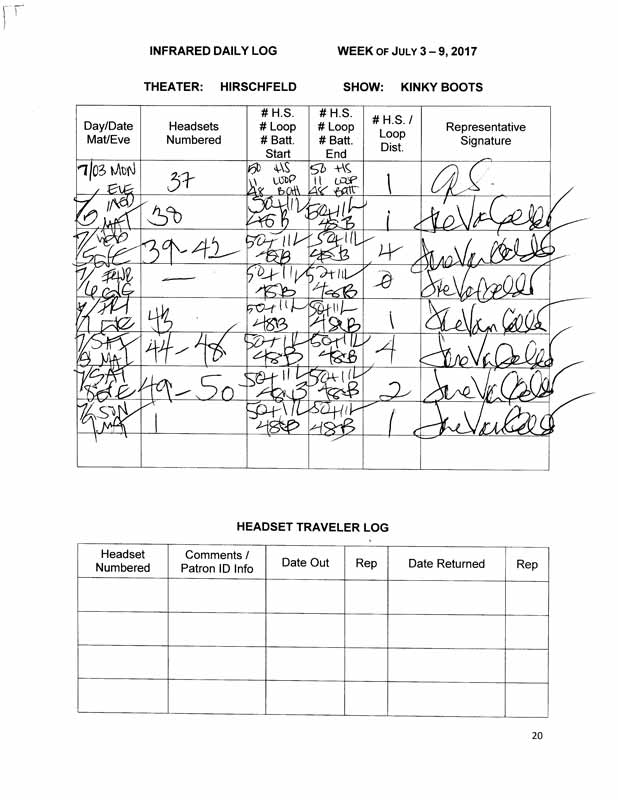 INFRARED DAILY LOG WEEK OF JULY 3 – 9, 2017
THEATER: HIRSCHFELD SHOW: KINKY BOOTS
Day/Date Mat/Eve | Headsets Numbered | # H.S. # Loop # Batt. Start | # H.S. # Loop # Batt. End | # H.S. / Loop Dist. | Representative Signature
7/03 MON EVE | 37 | 50 HS 11 LOOP 48 BATT | 50 HS 11 LOOP 48 BATT | 1
MAT | 38 | 50+11L 48B | 50+11L 48B | 1 | Joe Van
7/ WED 5 EVE | 39-42 | 50+11L 48B | 50+11L 48B | 4 | Joe Van
7/ 6 EVE | — | 50+11L 48B | 50+11L 48B | 0 | Joe Van
7/ FRI 7 EVE | 43 | 50+11L 48B | 50+11L 48B | 1 | Joe Van
7/SAT 8 MAT | 44-48 | 50+11L 48B | 50+11L 48B | 4 | Joe Van
7/SAT 8 EVE | 49-50 | 50+11L 48B | 50+11L 48B | 2 | Joe Van
7/ SUN MAT | 1 | 50+11L 48B | 50+11L 48B | 1 | Joe Van
HEADSET TRAVELER LOG
Headset Numbered | Comments / Patron ID Info | Date Out | Rep | Date Returned | Rep
20